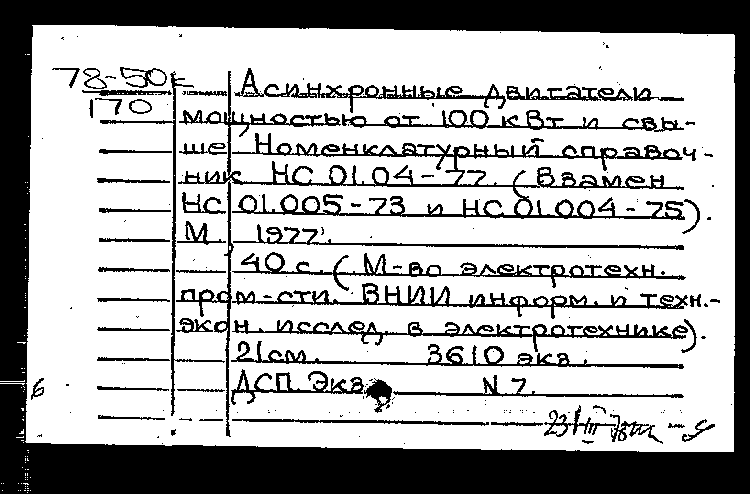 78-50к Асинхронные двигатели
170
мощностью от 100 кВт и свы-
ше Номенклатурный справоч-
ник НС 01.04-77. (Взамен
НС 01.005-73 и НС 01.004-75).
М 1977.
40 с. (М-во электротехн.
пром-сти. ВНИИ информ. и техн.-
экон. исслед. в электротехнике).
21см. 3610 экз.
6 ДСП Экз N 7.
23/III